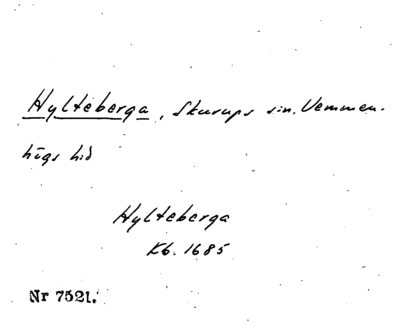 Hylteberga, Skurups sn. Vemmen-
högs hd
Hylteberga
Kb. 1685
Nr 7521.